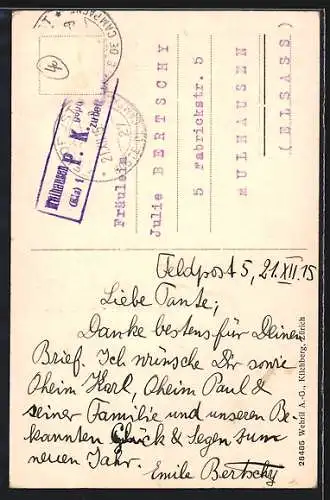 Fräulein
Julie BERTSCHY
5 Fabrickstr. 5
MULHAUSEN
(ELSASS)
Mülhausen
(Els) 1
P. K.
40
Feldpost 5, 21.XII.15
Liebe Tante;
Danke bestens für Deinen
Brief. Ich wünsche Dir sowie
Oheim Karl, Oheim Paul &
seiner Familie und unseren Be-
kannten Glück & Segen zum
neuen Jahr.
Emile Bertschy
28485 Wehrli A.-G., Kilchberg, Zürich